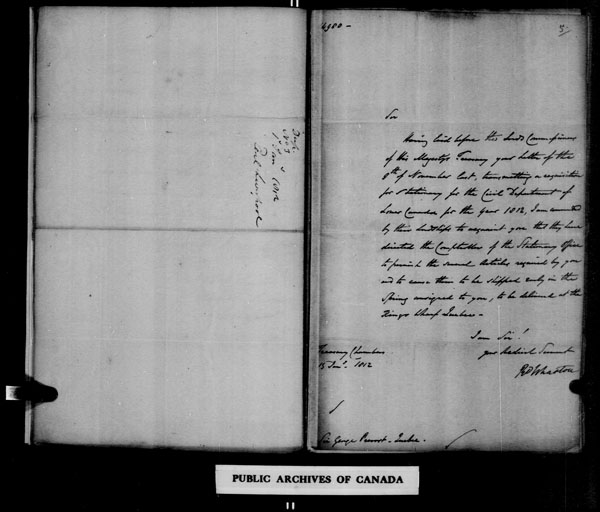 No 3
1st Jan 1812
Ld Liverpool
4980 -
Sir
Having laid before the Lords Commissioners
of His Majesty's Treasury your letter of the
9th of November last, transmitting a requisition
for Stationery for the Civil Department of
Lower Canada for the year 1812, I am commanded
by their Lordships to acquaint you that they have
directed the Comptroller of the Stationery Office
to furnish the several Articles required by you
and to cause them to be shipped early in the
Spring consigned to you, to be delivered at the
Kings Wharf Quebec -
I am Sir!
your Obedient Servant
Wharton
Treasury Chambers
13 Jany 1812
Sir George Prevost - Quebec -
PUBLIC ARCHIVES OF CANADA